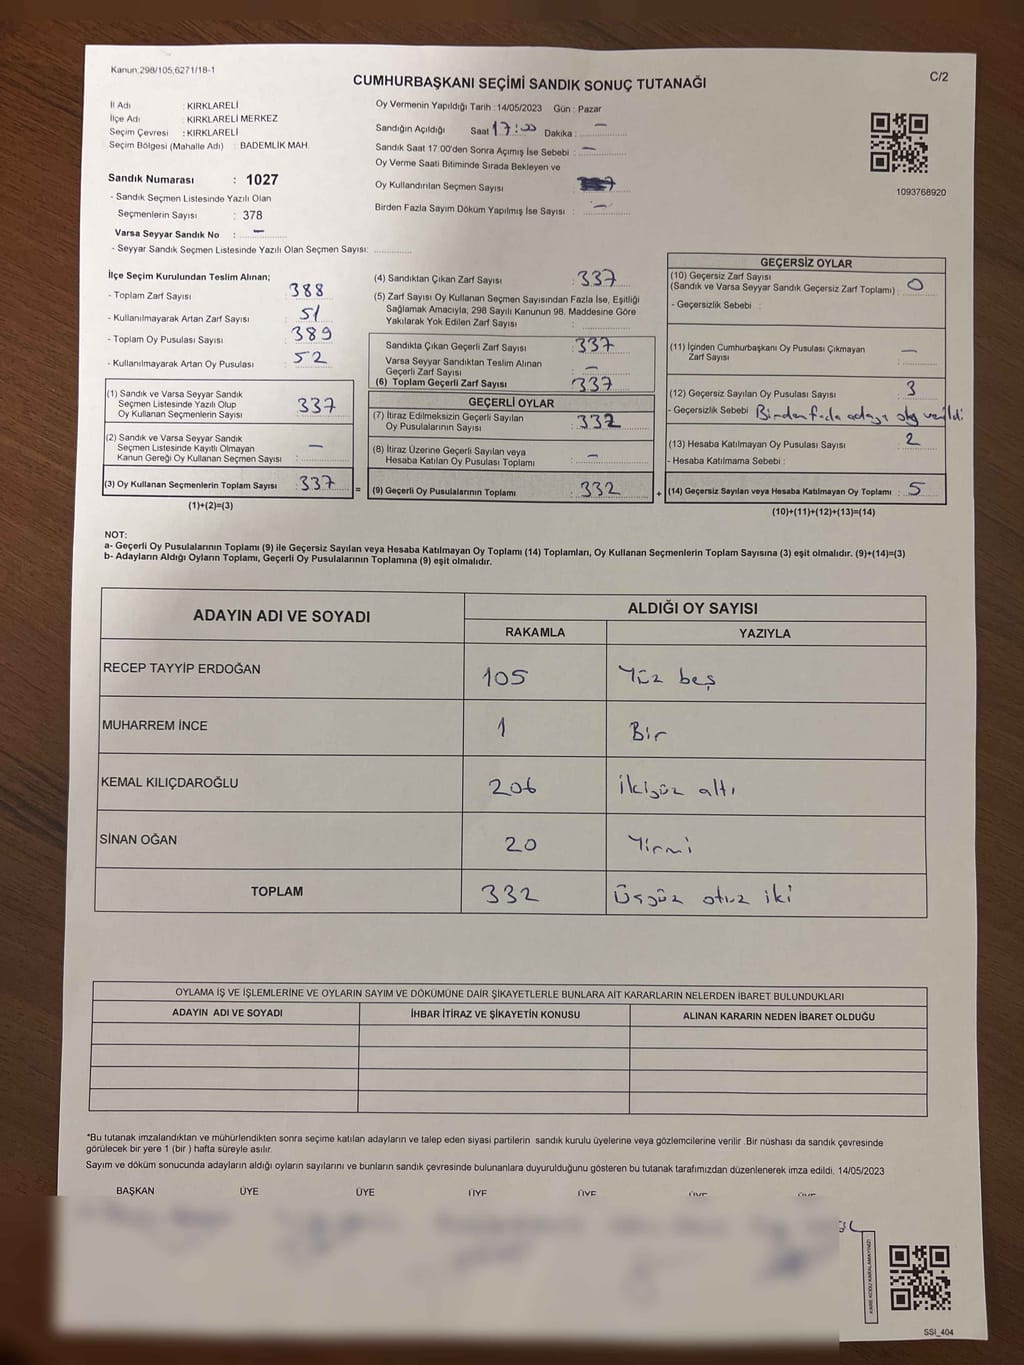 Kanun:298/105,6271/18-1
CUMHURBAŞKANI SEÇİMİ SANDIK SONUÇ TUTANAĞI
C/2
İl Adı : KIRKLARELİ
İlçe Adı : KIRKLARELİ MERKEZ
Seçim Çevresi : KIRKLARELİ
Seçim Bölgesi (Mahalle Adı) : BADEMLİK MAH.
Sandık Numarası : 1027
- Sandık Seçmen Listesinde Yazılı Olan
Seçmenlerin Sayısı : 378
Varsa Seyyar Sandık No : –
- Seyyar Sandık Seçmen Listesinde Yazılı Olan Seçmen Sayısı:
Oy Vermenin Yapıldığı Tarih :14/05/2023 Gün : Pazar
Sandığın Açıldığı Saat 17:00 Dakika : –
Sandık Saat 17:00'den Sonra Açımış İse Sebebi : –
Oy Verme Saati Bitiminde Sırada Bekleyen ve
Oy Kullandırılan Seçmen Sayısı
Birden Fazla Sayım Döküm Yapılmış İse Sayısı : –
1093768920
İlçe Seçim Kurulundan Teslim Alınan;
- Toplam Zarf Sayısı 388
- Kullanılmayarak Artan Zarf Sayısı : 51
- Toplam Oy Pusulası Sayısı : 389
- Kullanılmayarak Artan Oy Pusulası : 52
(1) Sandık ve Varsa Seyyar Sandık
Seçmen Listesinde Yazılı Olup
Oy Kullanan Seçmenlerin Sayısı : 337
(2) Sandık ve Varsa Seyyar Sandık
Seçmen Listesinde Kayıtlı Olmayan
Kanun Gereği Oy Kullanan Seçmen Sayısı : –
(3) Oy Kullanan Seçmenlerin Toplam Sayısı : 337 =
(1)+(2)=(3)
(4) Sandıktan Çıkan Zarf Sayısı : 337
(5) Zarf Sayısı Oy Kullanan Seçmen Sayısından Fazla İse, Eşitliği
Sağlamak Amacıyla, 298 Sayılı Kanunun 98. Maddesine Göre
Yakılarak Yok Edilen Zarf Sayısı :
Sandıkta Çıkan Geçerli Zarf Sayısı : 337
Varsa Seyyar Sandıktan Teslim Alınan
Geçerli Zarf Sayısı : –
(6) Toplam Geçerli Zarf Sayısı : 337
GEÇERLİ OYLAR
(7) İtiraz Edilmeksizin Geçerli Sayılan
Oy Pusulalarının Sayısı : 332
(8) İtiraz Üzerine Geçerli Sayılan veya
Hesaba Katılan Oy Pusulası Toplamı : –
(9) Geçerli Oy Pusulalarının Toplamı : 332 +
GEÇERSİZ OYLAR
(10) Geçersiz Zarf Sayısı
(Sandık ve Varsa Seyyar Sandık Geçersiz Zarf Toplamı) : 0
- Geçersizlik Sebebi :
(11) İçinden Cumhurbaşkanı Oy Pusulası Çıkmayan
Zarf Sayısı : –
(12) Geçersiz Sayılan Oy Pusulası Sayısı : 3
- Geçersizlik Sebebi Birden fazla adaya oy verildi
(13) Hesaba Katılmayan Oy Pusulası Sayısı : 2
- Hesaba Katılmama Sebebi :
(14) Geçersiz Sayılan veya Hesaba Katılmayan Oy Toplamı : 5
(10)+(11)+(12)+(13)=(14)
NOT:
a- Geçerli Oy Pusulalarının Toplamı (9) ile Geçersiz Sayılan veya Hesaba Katılmayan Oy Toplamı (14) Toplamları, Oy Kullanan Seçmenlerin Toplam Sayısına (3) eşit olmalıdır. (9)+(14)=(3)
b- Adayların Aldığı Oyların Toplamı, Geçerli Oy Pusulalarının Toplamına (9) eşit olmalıdır.
ADAYIN ADI VE SOYADI ALDIĞI OY SAYISI
RAKAMLA YAZIYLA
RECEP TAYYİP ERDOĞAN 105 Yüz beş
MUHARREM İNCE 1 Bir
KEMAL KILIÇDAROĞLU 206 İkiyüz altı
SİNAN OĞAN 20 Yirmi
TOPLAM 332 Üçyüz otuz iki
OYLAMA İŞ VE İŞLEMLERİNE VE OYLARIN SAYIM VE DÖKÜMÜNE DAİR ŞİKAYETLERLE BUNLARA AİT KARARLARIN NELERDEN İBARET BULUNDUKLARI
ADAYIN ADI VE SOYADI İHBAR İTİRAZ VE ŞİKAYETİN KONUSU ALINAN KARARIN NEDEN İBARET OLDUĞU
*Bu tutanak imzalandıktan ve mühürlendikten sonra seçime katılan adayların ve talep eden siyasi partilerin sandık kurulu üyelerine veya gözlemcilerine verilir .Bir nüshası da sandık çevresinde
görülecek bir yere 1 (bir ) hafta süreyle asılır.
Sayım ve döküm sonucunda adayların aldığı oyların sayılarını ve bunların sandık çevresinde bulunanlara duyurulduğunu gösteren bu tutanak tarafımızdan düzenlenerek imza edildi. 14/05/2023
BAŞKAN ÜYE ÜYE ÜYE ÜYE ÜYE ÜYE
KARE KODU KARALAMAYINIZ!
SSI_404